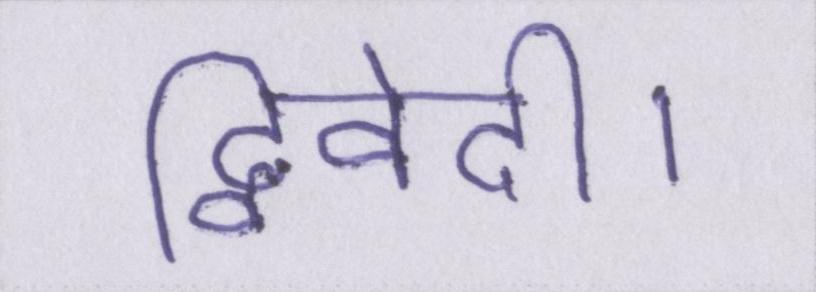 द्विवेदी।